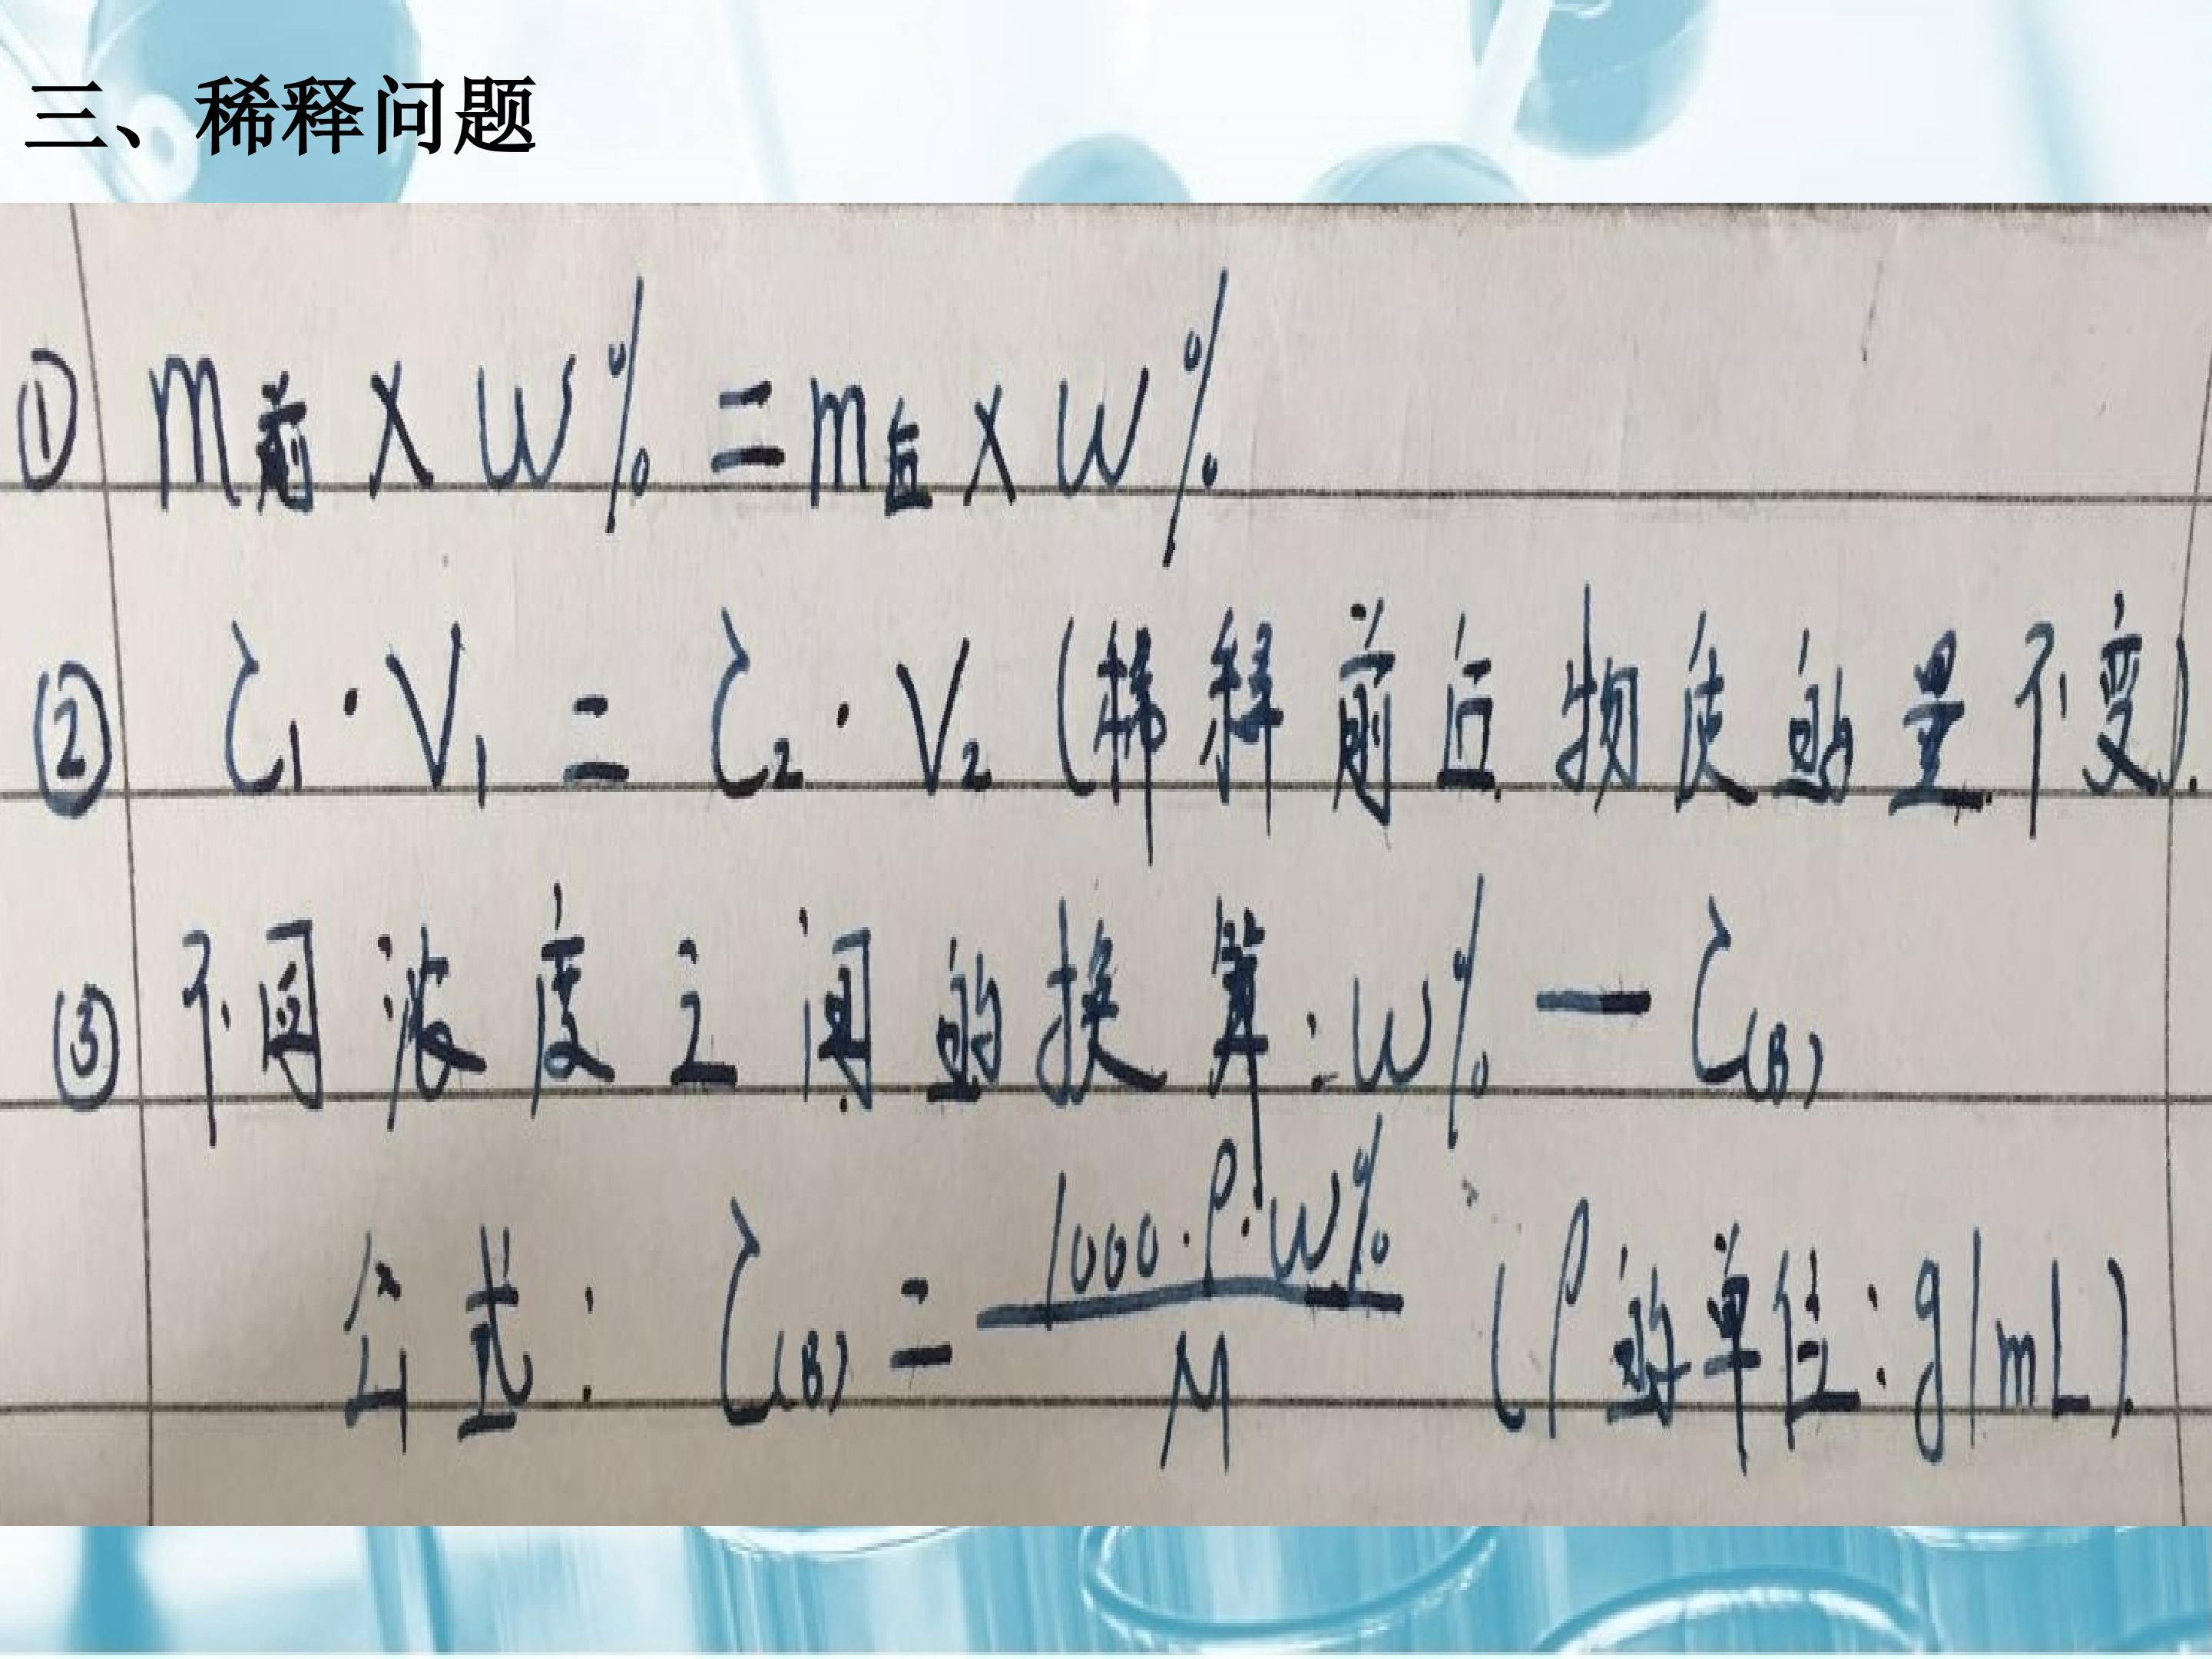 三、稀释问题
① m前 × W% = m后 × W%
② C₁·V₁ = C₂·V₂ (稀释前后物质的量不变).
③ 不同浓度之间的换算:W% — C(B)
公式: C(B) = 1000·ρ·W% / M (ρ的单位:g/mL).